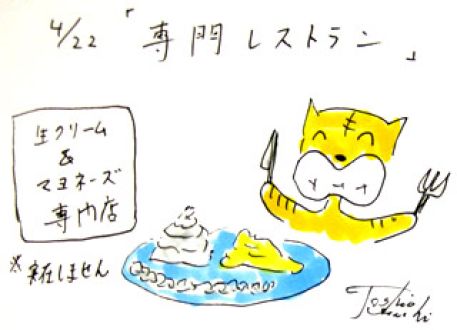 4/22 「専門レストラン」
生クリーム
&
マヨネーズ
専門店
※実在しません
Toshio